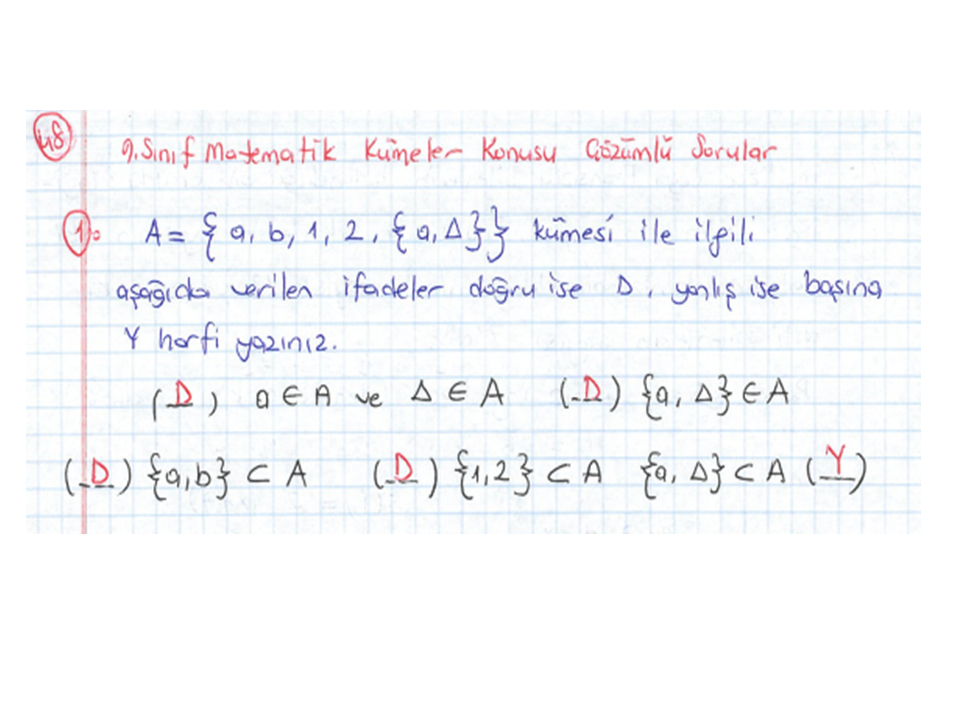 48
9.Sınıf Matematik Kümeler Konusu Çözümlü Sorular
1. A = { a, b, 1, 2, {a, Δ}} kümesi ile ilgili
aşağıda verilen ifadeler doğru ise D, yanlış ise başına
Y harfi yazınız.
(D) a ∈ A ve Δ ∈ A (D) {a, Δ} ∈ A
(D) {a,b} ⊂ A (D) {1,2} ⊂ A {a, Δ} ⊂ A (Y)